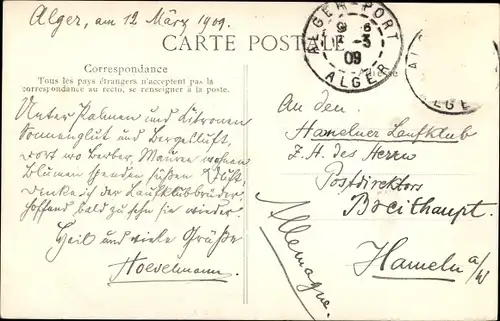 Alger, am 12 März 1909.
CARTE POSTALE
ALGER-PORT
9 6
-3
09
ALGER
Correspondance
Tous les pays étrangers n'acceptent pas la
correspondance au recto, se renseigner à la poste.
Unter Palmen und Zitronen
Sonnenglut und Bergesluft,
dort wo Berber, Mauren wohnen
Blumen spenden süßen Duft,
denke ich der Laufklubbrüder.
hoffend bald zu sehn sie wieder.
Heil und viele Grüße
Hoevelmann.
An den
Hamelner Laufklub
Z. H. des Herrn
Postdirektors
Breithaupt.
Hameln a/W
Allemagne.
ALGE